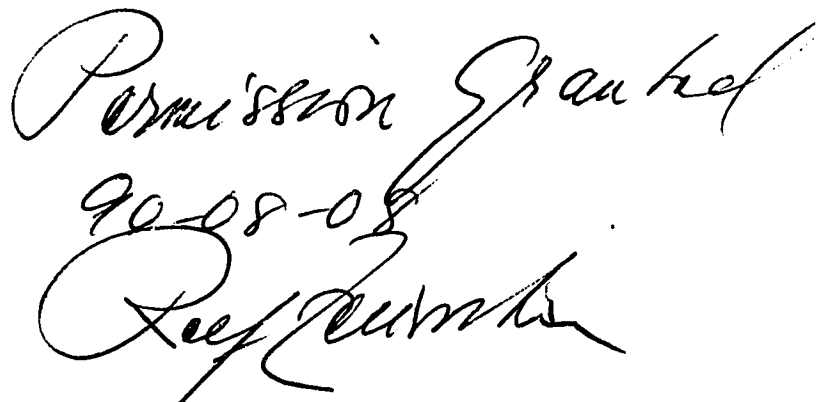 Permission Granted
90-08-08